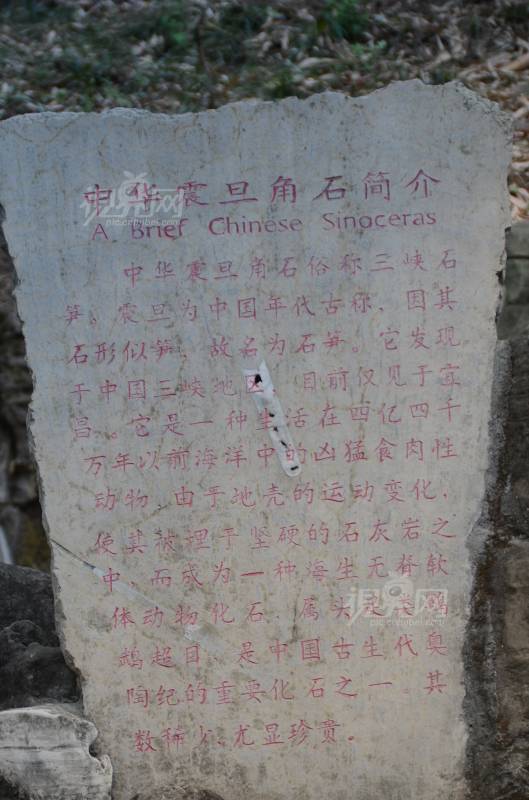 中华震旦角石简介
A Brief Chinese Sinoceras
中华震旦角石俗称三峡石
笋。震旦为中国年代古称，因其
石形似笋，故名为石笋。它发现
于中国三峡地区，目前仅见于宜
昌。它是一种生活在四亿四千
万年以前海洋中的凶猛食肉性
动物，由于地壳的运动变化，
使其被埋于坚硬的石灰岩之
中，而成为一种海生无脊软
体动物化石，属头足类鹦
鹉超目，是中国古生代奥
陶纪的重要化石之一。其
数稀少，尤显珍贵。